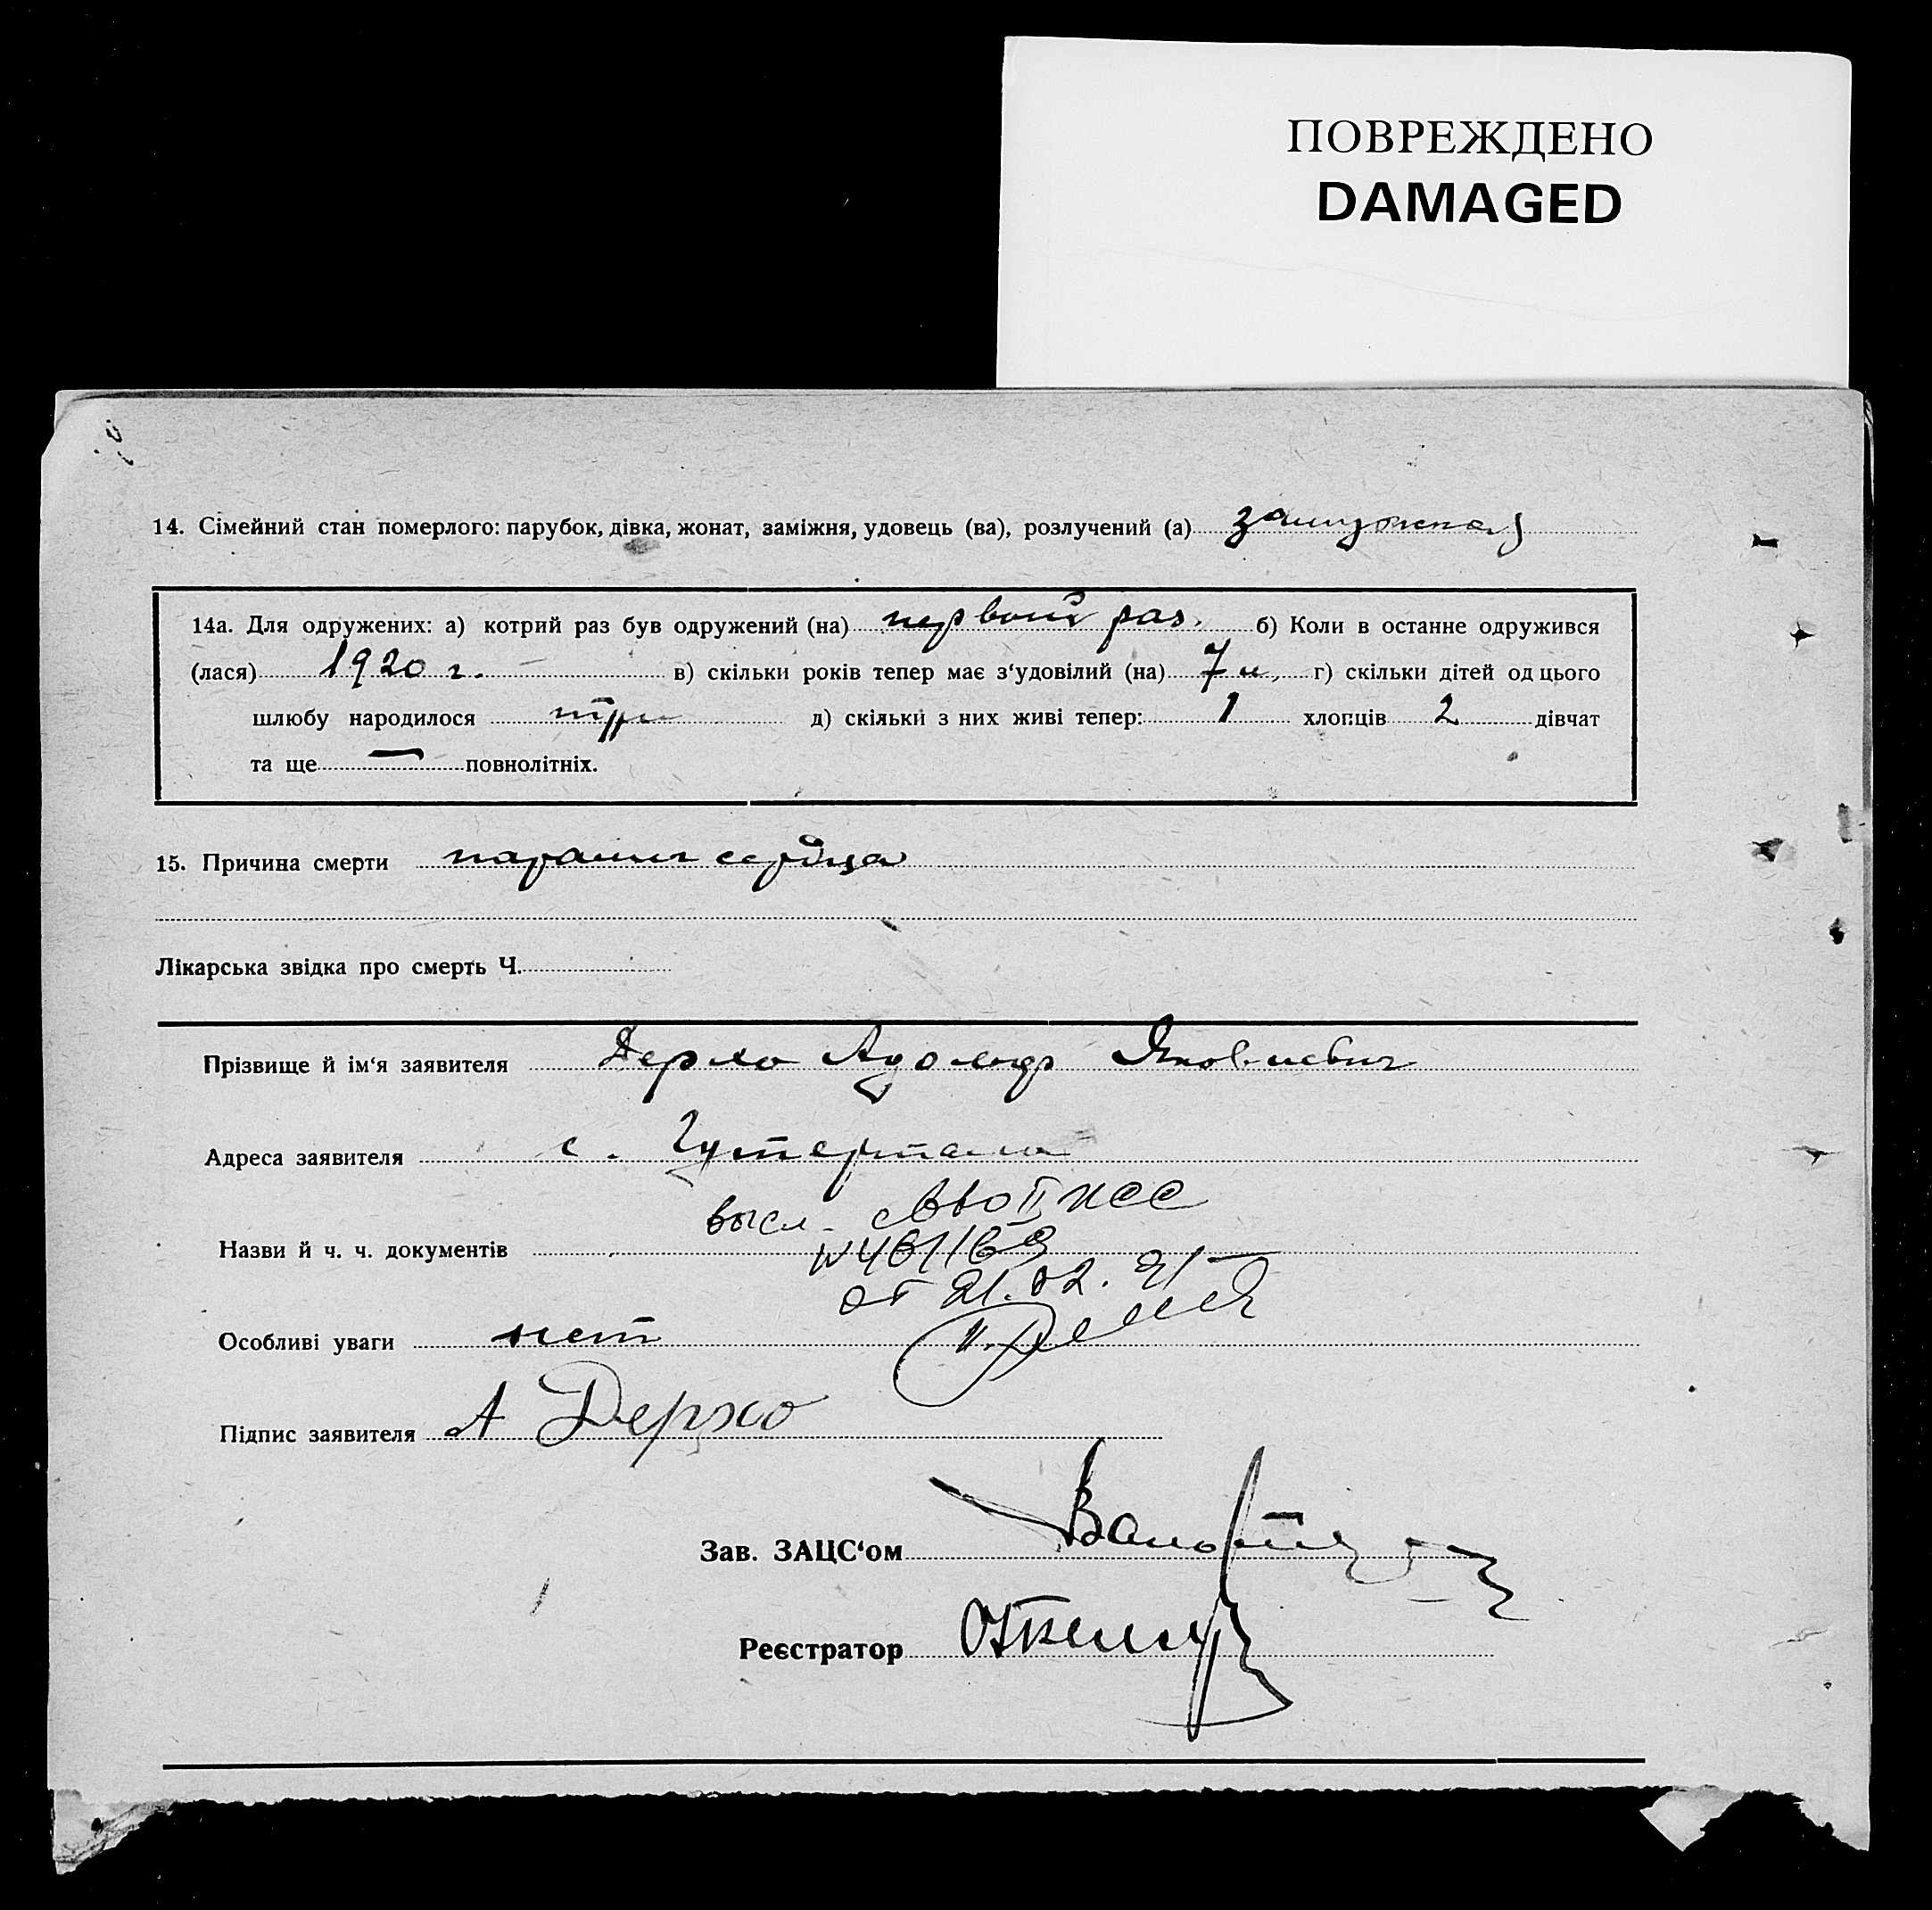 ПОВРЕЖДЕНО
DAMAGED
14. Сімейний стан померлого: парубок, дівка, жонат, заміжня, удовець (ва), розлучений (а) замужняя
14а. Для одружених: а) котрий раз був одружений (на) первый раз. б) Коли в останне одружився
(лася) 1920 г. в) скільки років тепер має з‘удовілий (на) г) скільки дітей од цього
шлюбу народилося три д) скільки з них живі тепер: 1 хлопців 2 дівчат
та ще — повнолітніх.
15. Причина смерти паралич сердца
Лікарська звідка про смерть Ч.
Прізвище й ім‘я заявителя Дерхо Адольф Яковлевич
Адреса заявителя с. Гутерталь
высл. св-во II ЖСС
Назви й ч. ч. документів N 461169
от 21.02.91
Особливі уваги нет
Підпис заявителя А Дерхо
Зав. ЗАЦС‘ом
Реєстратор